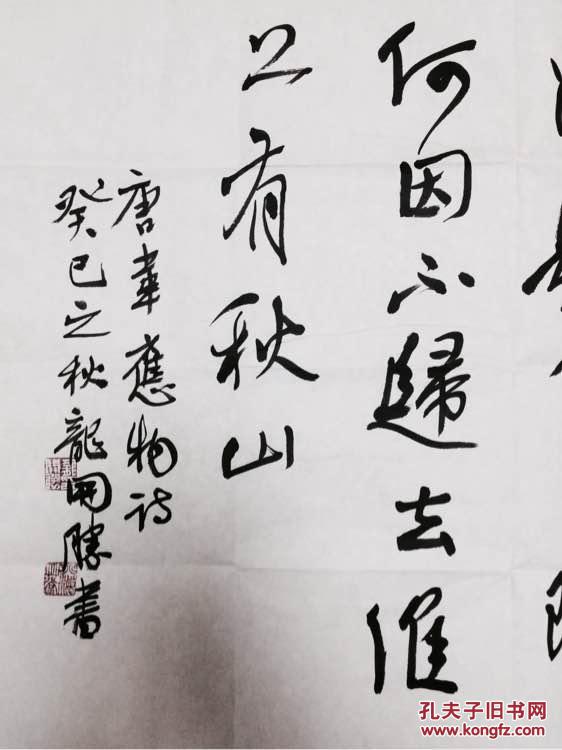 何因不歸去淮
上有秋山
唐韋應物詩
癸巳之秋龍開勝書
孔夫子旧书网
www.kongfz.com